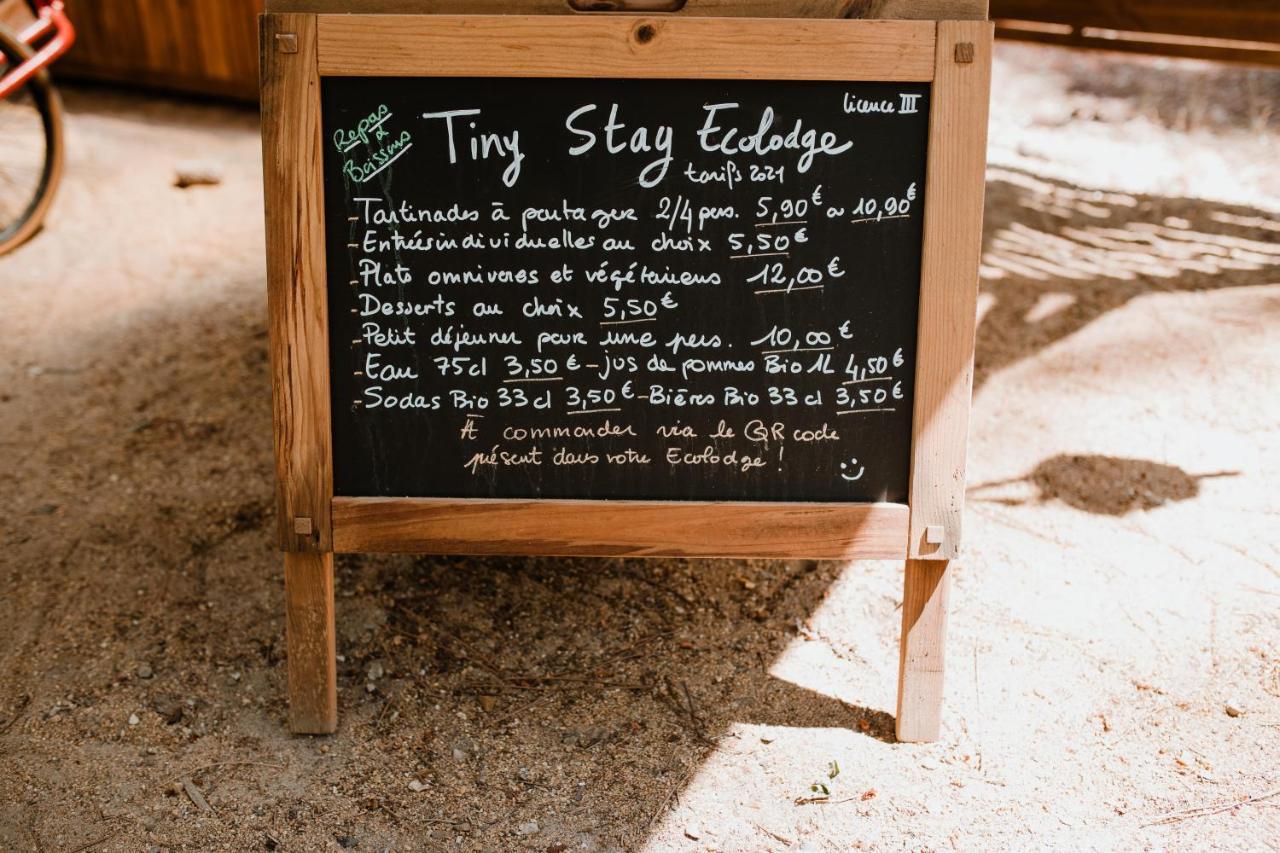 Repas & Boissons
Licence III
Tiny Stay Ecolodge
tarifs 2021
-Tartinades à partager 2/4 pers. 5,90€ ou 10,90€
-Entrées individuelles au choix 5,50€
-Plats omnivores et végétariens 12,00€
-Desserts au choix 5,50€
-Petit déjeuner pour une pers. 10,00€
-Eau 75cl 3,50€ -jus de pommes Bio 1L 4,50€
-Sodas Bio 33cl 3,50€ -Bières Bio 33cl 3,50€
A commander via le QR code
présent dans votre Ecolodge !